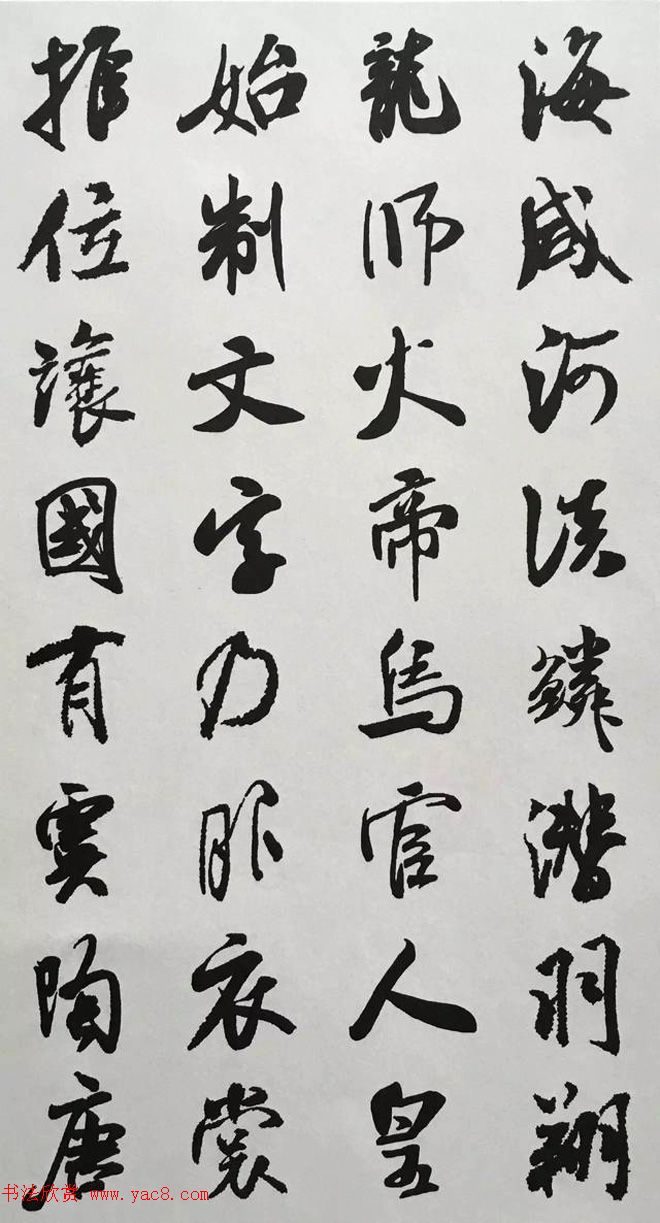 海咸河淡鱗潛羽翔
龍師火帝鳥官人皇
始制文字乃服衣裳
推位讓國有虞陶唐
书法欣赏 www.yac8.com